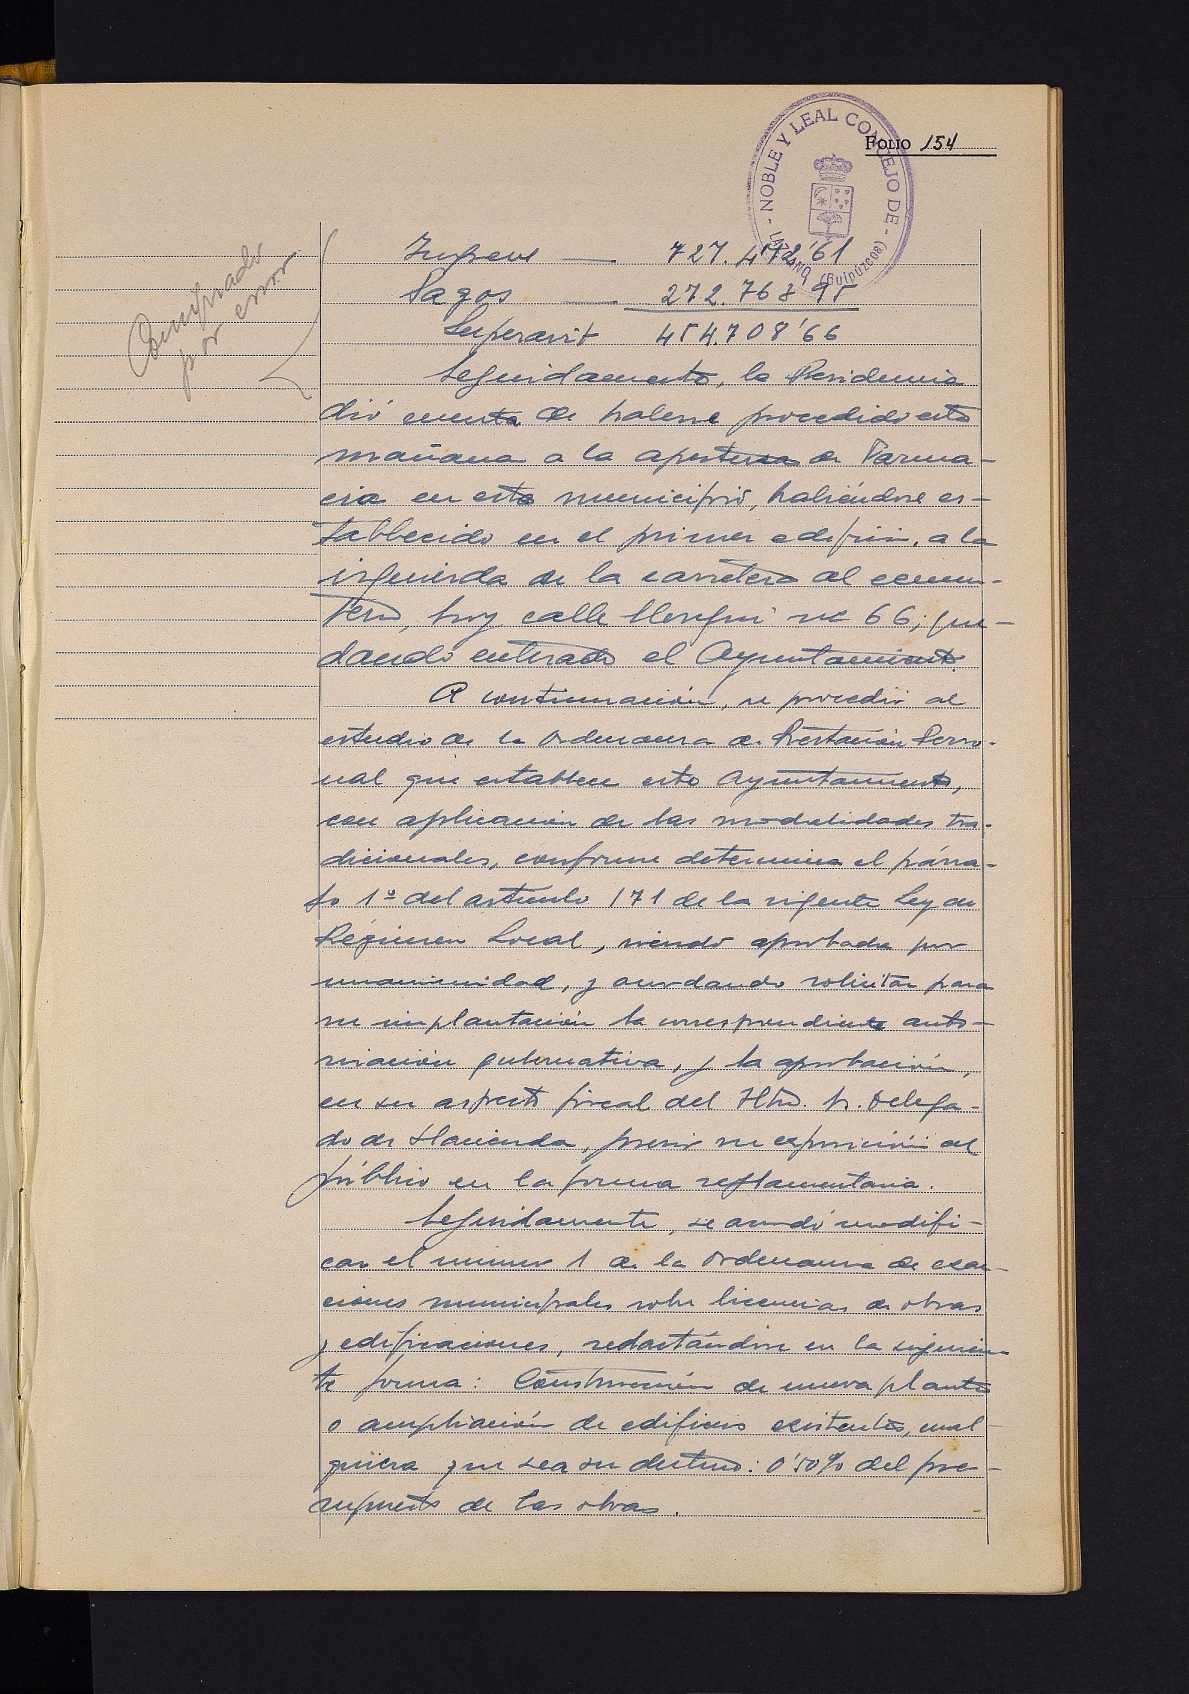 FOLIO 154
- NOBLE Y LEAL CONCEJO DE -
LAZCANO (Guipúzcoa)
Consignado
por error
Ingresos — 727.472'61
Pagos — 272.763'95
Superavit 454.708'66
Seguidamente, la Presidencia
dió cuenta de haberse procedido esta
mañana a la apertura de Farma-
cia en este municipio, habiéndose es-
tablecido en el primer edificio, a la
izquierda de la carretera al cemen-
terio, hoy calle nº 66, que-
dando enterado el Ayuntamiento.
A continuación, se procedió al
estudio de la Ordenanza de Prestación Perso-
nal que establece este Ayuntamiento,
con aplicación de las modalidades tra-
dicionales, conforme determina el párra-
fo 1º del artículo 171 de la vigente Ley de
Régimen Local, siendo aprobada por
unanimidad, y acordando solicitar para
su implantación la correspondiente auto-
rización gubernativa, y la aprobación,
en su aspecto fiscal del Iltmo. Sr. Delega-
do de Hacienda, previa su exposición al
público en la forma reglamentaria.
Seguidamente, se acordó modifi-
car el número 1 de la Ordenanza de exac-
ciones municipales sobre licencias de obras
y edificaciones, redactándose en la siguien-
te forma: Construcción de nueva planta
o ampliación de edificios existentes, cual-
quiera que sea su destino: 0'50% del pre-
supuesto de las obras.